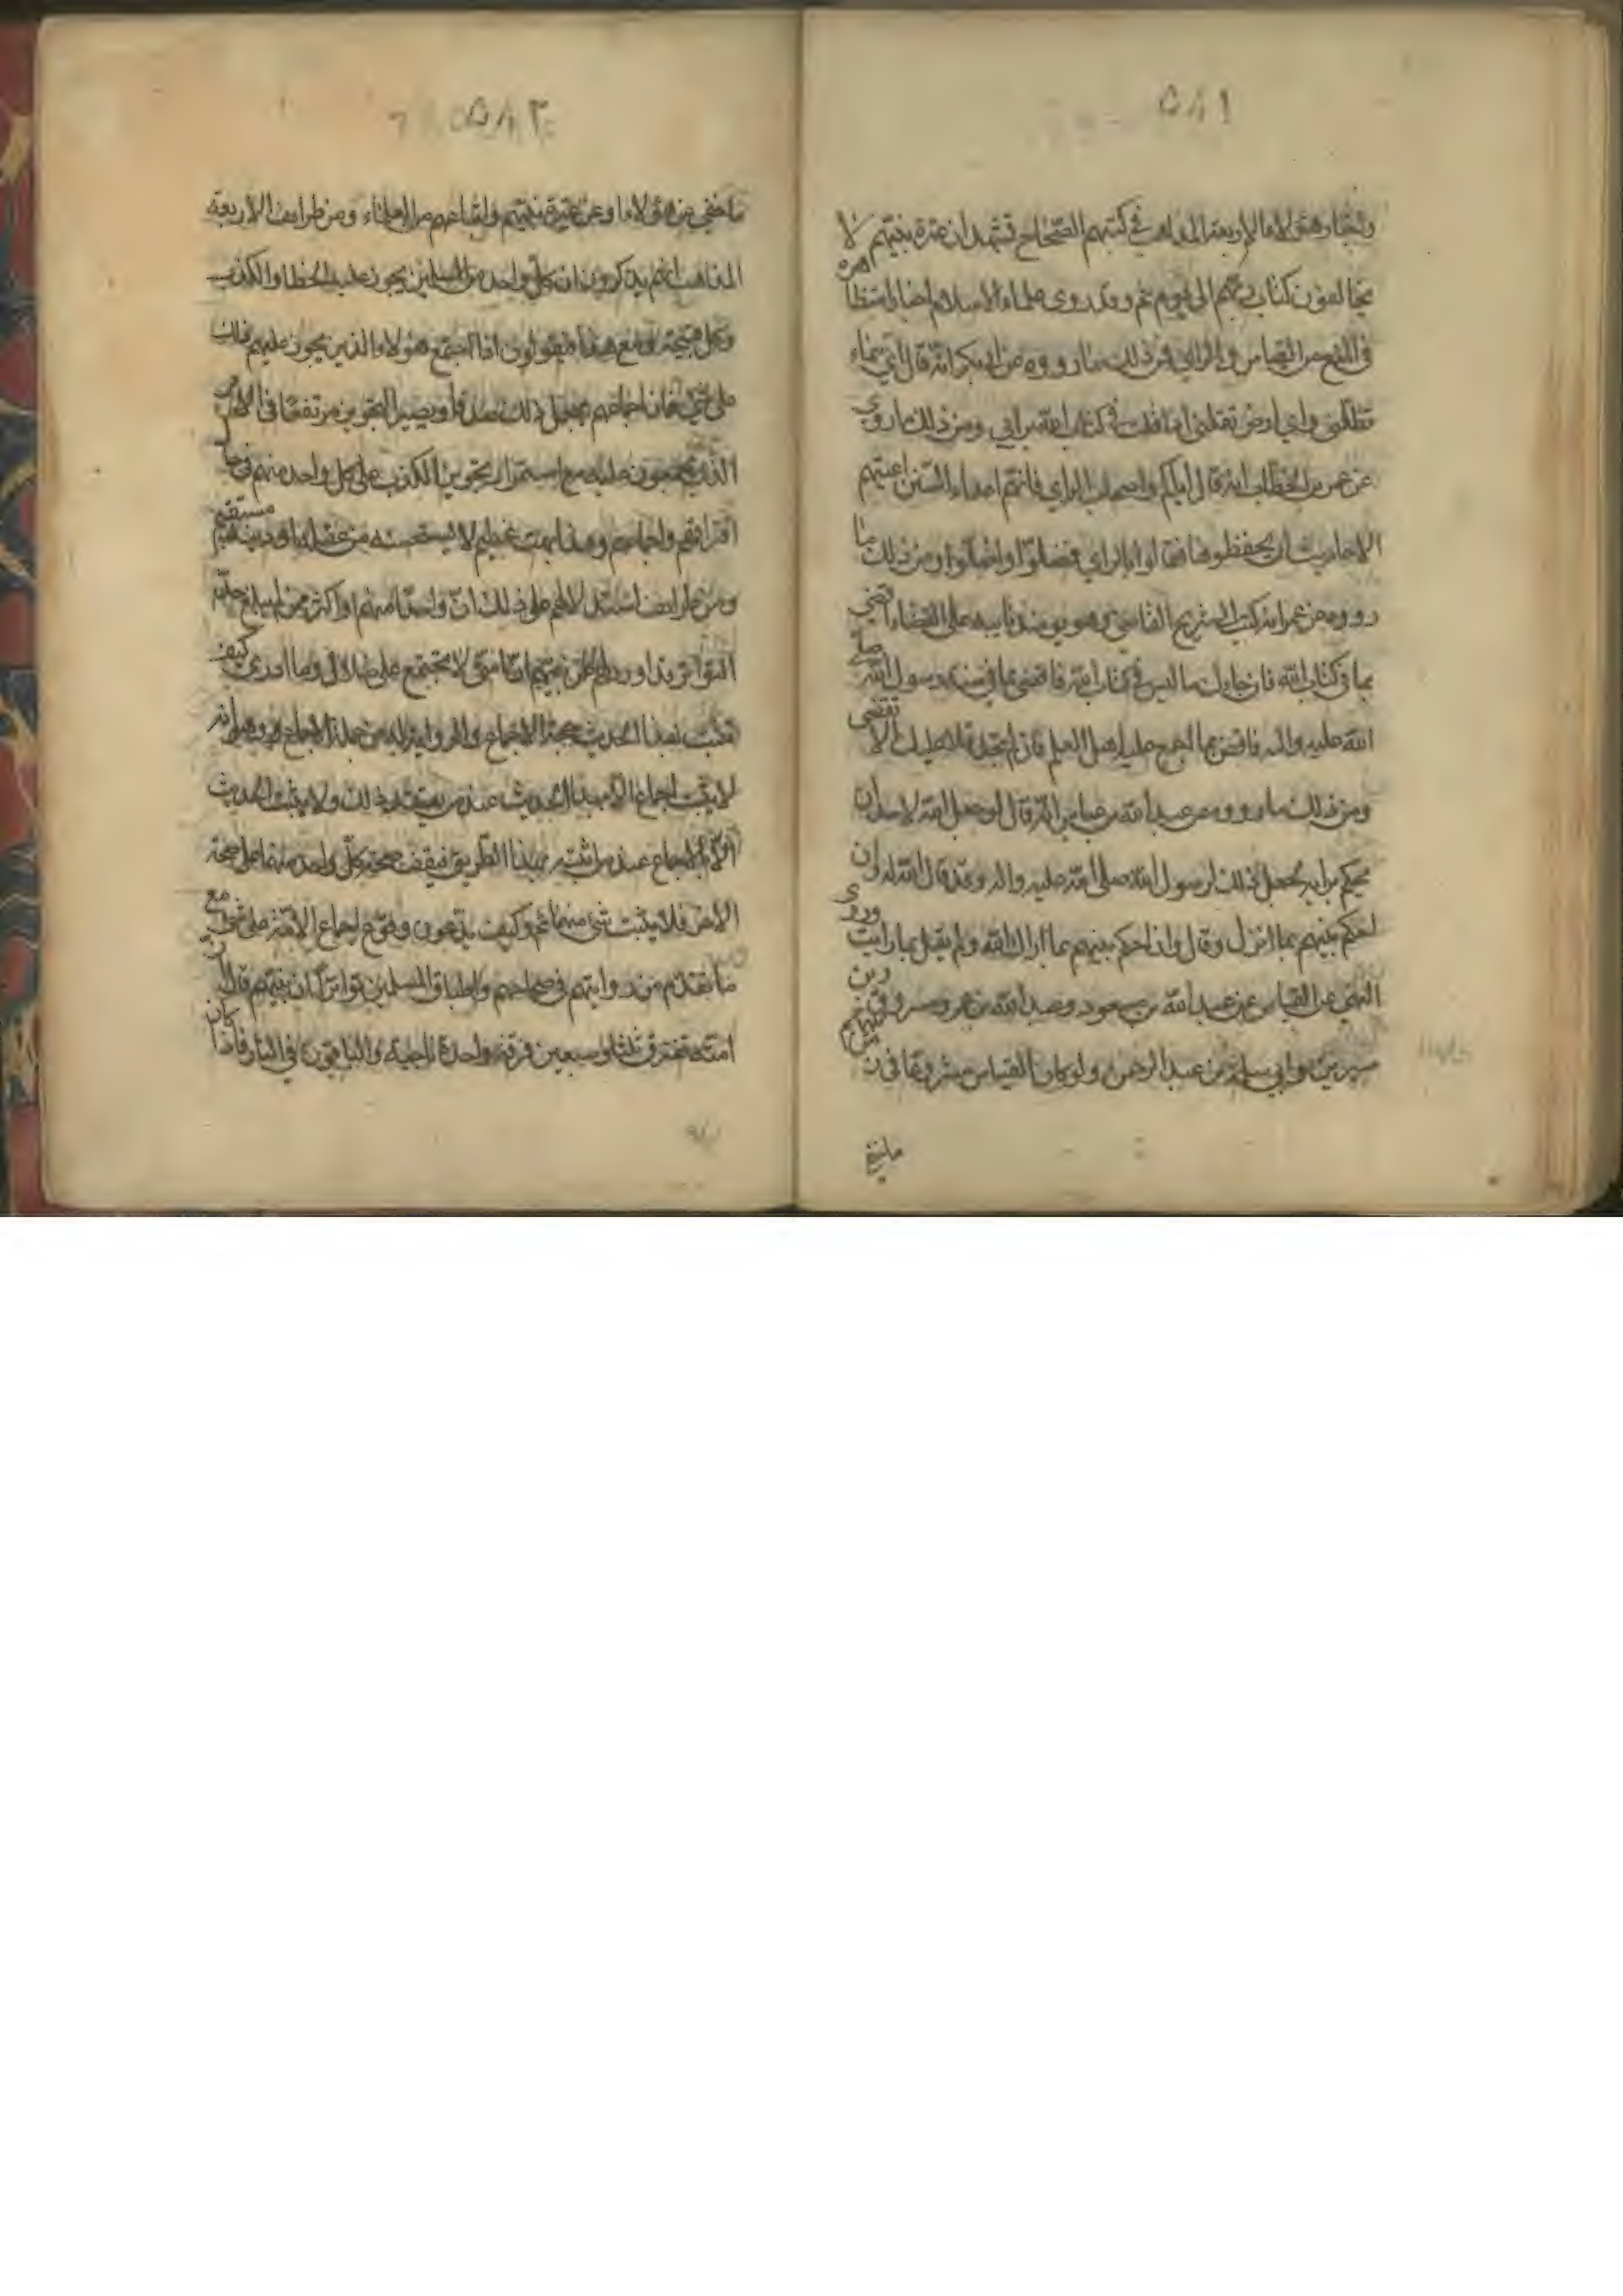 ٥٨١
واخبار هؤلاء الاربعة المذاهب في كتبهم الصحاح تشهد ان عترة نبيهم لا
يخالفون كتاب ربهم الى يوم وقد روى علماء الاسلام اخبارا متظاهرة
في المنع من القياس والراي فمن ذلك ما رووه عن ابي بكر انه قال اي سماء
تظلني واي ارض تقلني اذا قلت في كتاب الله برايي ومن ذلك ما روي
عن عمر بن الخطاب انه قال اياكم واصحاب الراي فانهم اعداء السنن اعيتهم
الاحاديث ان يحفظوها فقالوا بالراي فضلوا واضلوا ومن ذلك ما
رووه عن عمر انه كتب الى شريح القاضي وهو يومئذ نايبه على القضاء اقض
بما في كتاب الله فان جاءك ما ليس في كتاب الله فاقض بما في سنة رسول الله صلى
الله عليه واله فاقض بما اجمع عليه اهل العلم فان لم تجد فلا عليك الا تقضى
ومن ذلك ما رووه عن عبد الله بن عباس انه قال لو جعل الله لاحد ان
يحكم برايه لجعل ذلك لرسول الله صلى الله عليه واله وقد قال الله له وان
احكم بينهم بما انزل وقال وان احكم بينهم بما اراك الله ولم يقل بما رايت وروى
النهي عن القياس عن عبد الله بن مسعود وعبد الله بن عمر ومسروق وبن
سيرين وابي سلمة بن عبد الرحمن ولو كان القياس مشروعا في شرايع
٥٨٢
ما خفي عن هؤلاء وعن عترة نبيهم واتباعهم من العلماء ومن طرايف الاربعة
المذاهب انهم يذكرون ان كل واحد من المسلمين يجوز عليه الخطا والكذب
وكل قبيحة ومع هذا فيقولون اذا اجتمع هؤلاء الذين يجوز عليهم ذلك
على شيء فان اجماعهم يجعل ذلك صدقا ويصير التجويز مرتفعا في الامر
الذي يجمعون عليه مع استمرار تجويز الكذب على كل واحد منهم في حال
افتراقهم واجماعهم وهذا بهت عظيم لا يستحسنه من عقله او دينه مستقيم
ومن طرايف استدلالهم على ذلك ان واحدا منهم او اكثر ممن لم يبلغ حد
التواتر قد اورد لهم عن نبيهم ان امتي لا تجتمع على ضلال وما ادري كيف
تثبت بهذا الحديث حجة الاجماع والروايتان من جملة الاجماع
لا يثبت اجماع الا بهذا الحديث عند من يعتقد ذلك ولا يثبت الحديث
الا بالاجماع عند من اثبته بهذا الطريق فيقف صحة كل واحد منهما على صحة
الاخر فلا يثبت شيء منهما ثم وكيف يدعون وقوع اجماع الامة على شيء مع
ما تقدم من روايتهم في صحاحهم واطباق المسلمين تواترا ان نبيهم قال ان
امته تفترق ثلثا وسبعين فرقة واحدة ناجية والباقون في النار فاذا كان